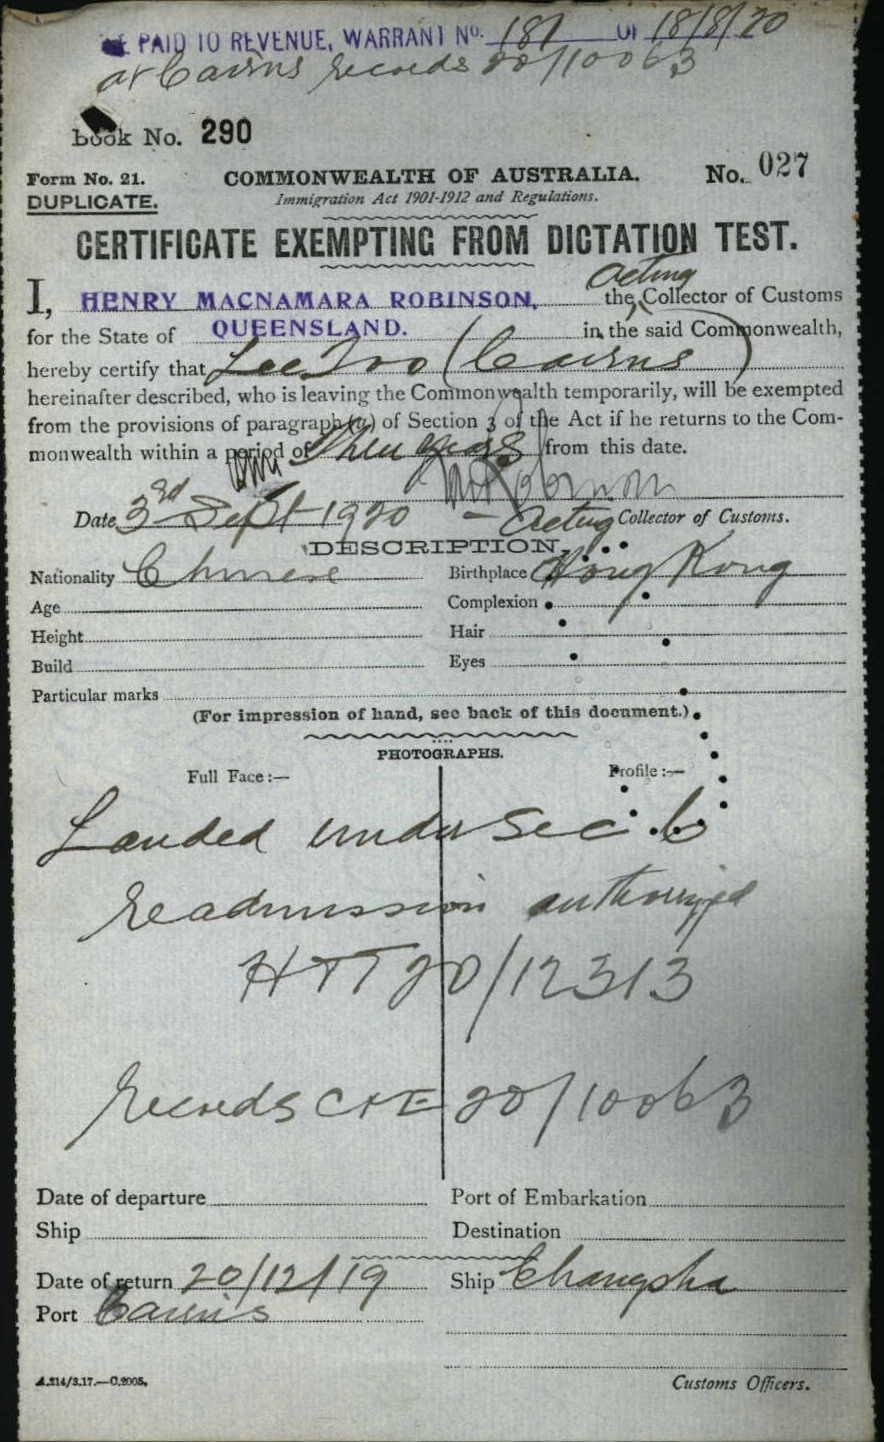 £1 PAID TO REVENUE, WARRANT No. 181 OF 18/8/20
at Cairns records 20/10063
Book No. 290
Form No. 21. COMMONWEALTH OF AUSTRALIA. No. 027
DUPLICATE. Immigration Act 1901-1912 and Regulations.
CERTIFICATE EXEMPTING FROM DICTATION TEST.
acting
I, HENRY MACNAMARA ROBINSON, the Collector of Customs
for the State of QUEENSLAND. in the said Commonwealth,
hereby certify that Lee Too (Cairns)
hereinafter described, who is leaving the Commonwealth temporarily, will be exempted
from the provisions of paragraph (a) of Section 3 of the Act if he returns to the Com-
monwealth within a period of Three years from this date.
HM Robinson
Date 3rd Sept 1920 - Acting Collector of Customs.
DESCRIPTION.
Nationality Chinese Birthplace Hong Kong
Age Complexion
Height Hair
Build Eyes
Particular marks
(For impression of hand, see back of this document.)
PHOTOGRAPHS.
Full Face :— Profile :—
Landed under Sec. 6
Readmission authorized
H & T 20/12313
Records C & E 20/10063
Date of departure Port of Embarkation
Ship Destination
Date of return 20/12/19 Ship Changsha
Port Cairns
A.214/3.17.—C.2005. Customs Officers.